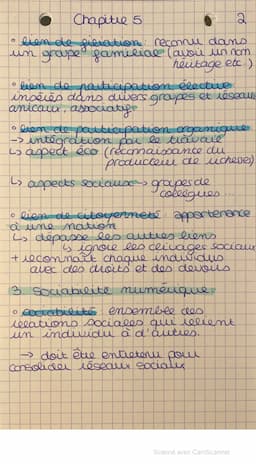 Chapitre 5 2
• lien de filiation : reconnu dans
un grape familial (avoir un nom
héritage etc.)
• lien de participation élective
insérés dans divers grapes et réseaux
amicaux, associatifs
• lien de participation organique
→ intégration par le travail
↳ aspect éco (reconnaissance du
producteur de richesse)
↳ aspects sociaux → grapes de
collègues
• lien de citoyenneté appartenance
à une nation
↳ dépasse les autres liens
↳ ignore les clivages sociaux
+ reconnaît chaque individus
avec des droits et des devoirs
3 Sociabilité numérique
• sociabilité : ensemble des
relations sociales qui relient
un individu à d'autres.
→ doit être entretenu pour
consolider réseaux sociaux
Scanné avec CamScanner